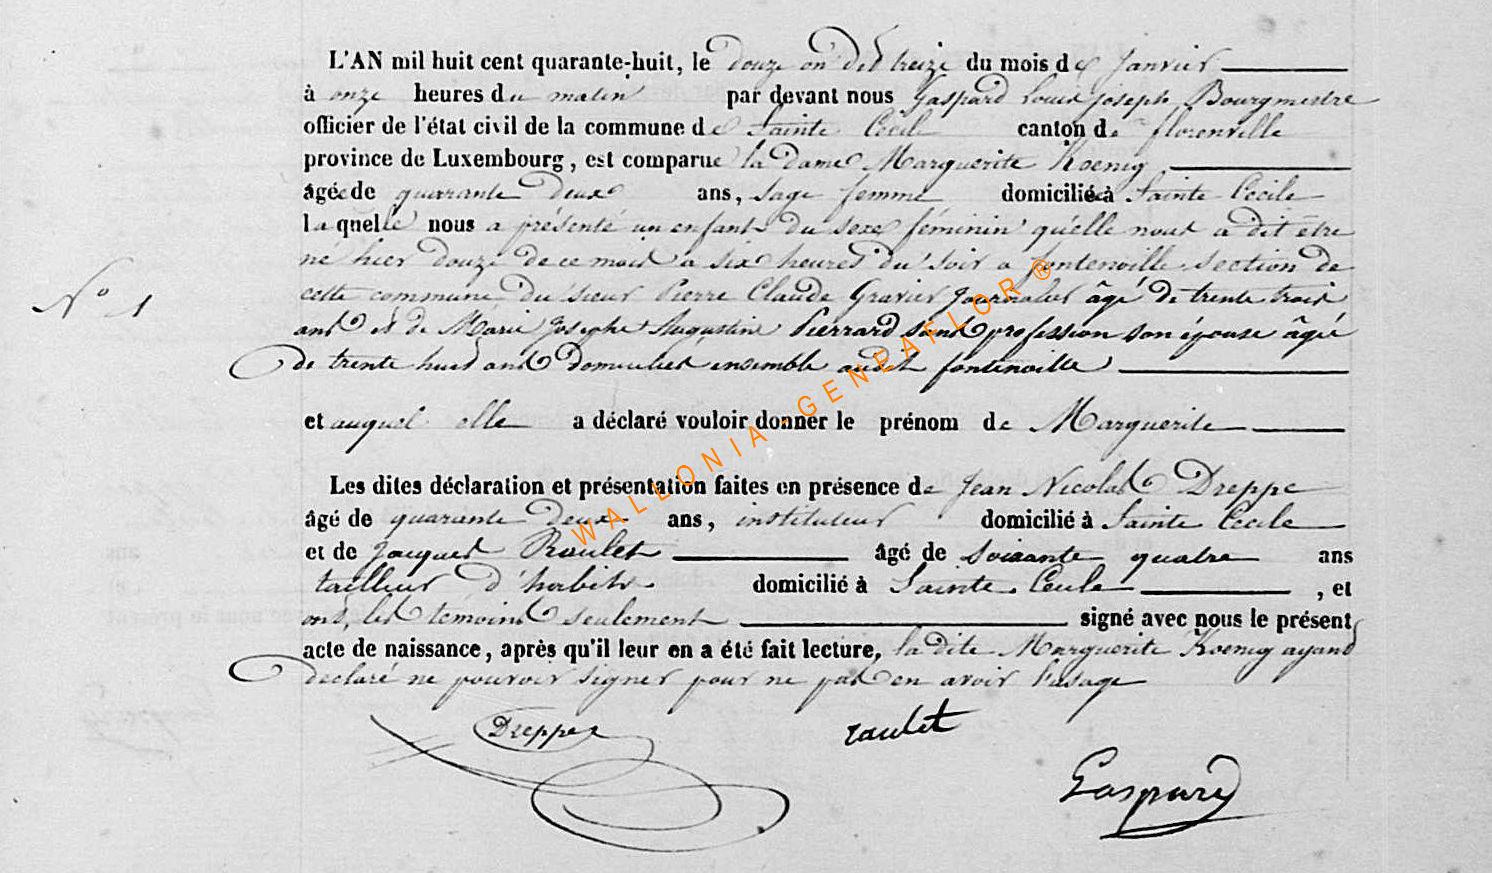 L'AN mil huit cent quarante-huit, le douze on dit treize du mois de Janvier
à onze heures du matin par devant nous Gaspard Louis Joseph Bourgmestre
officier de l'état civil de la commune de Sainte Cecile canton de florenville
province de Luxembourg, est comparue la dame Marguerite Koenig,
âgée de quarante deux ans, sage femme domiciliée à Sainte Cecile
laquelle nous a présenté un enfant du sexe féminin qu'elle nous a dit être
né hier douze de ce mois à six heures du soir a fontenoille section de
cette commune du sieur Pierre Claude Gravier Journalier âgé de trente trois
N° 1
ans et de Marie Josephe Augustine Pierrard sans profession son épouse âgée
de trente huit ans domiciliés ensemble audit fontenoille
et auquel elle a déclaré vouloir donner le prénom de Marguerite
Les dites déclaration et présentation faites en présence de Jean Nicolas Dreppe
âgé de quarante deux ans, instituteur domicilié à Sainte Cecile
et de Jacques Raulet âgé de soixante quatre ans
tailleur d'habits domicilié à Sainte Cecile, et
ont, les témoins seulement signé avec nous le présent
acte de naissance, après qu'il leur en a été fait lecture, la dite Marguerite Koenig ayant
declaré ne pouvoir signer pour ne pas en avoir l'usage
Dreppe raulet
Gaspard
WALLONIA - GENEAFLOR ®